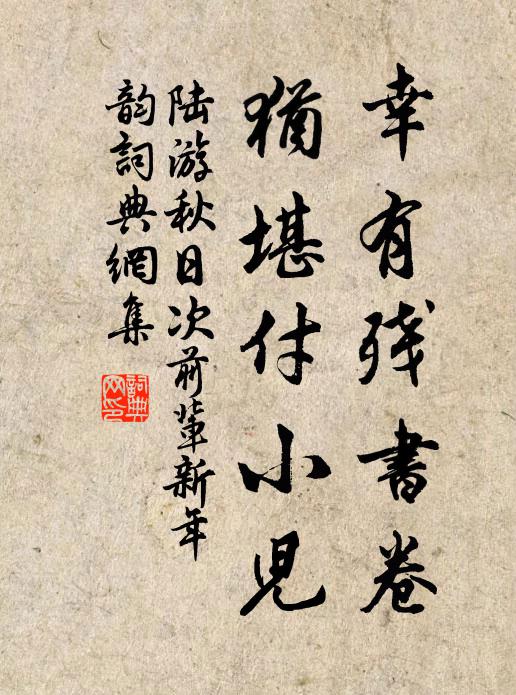 幸有残書卷
猶堪付小児
陆游秋日次前輩新年
韵詞典網集
詞典
网印